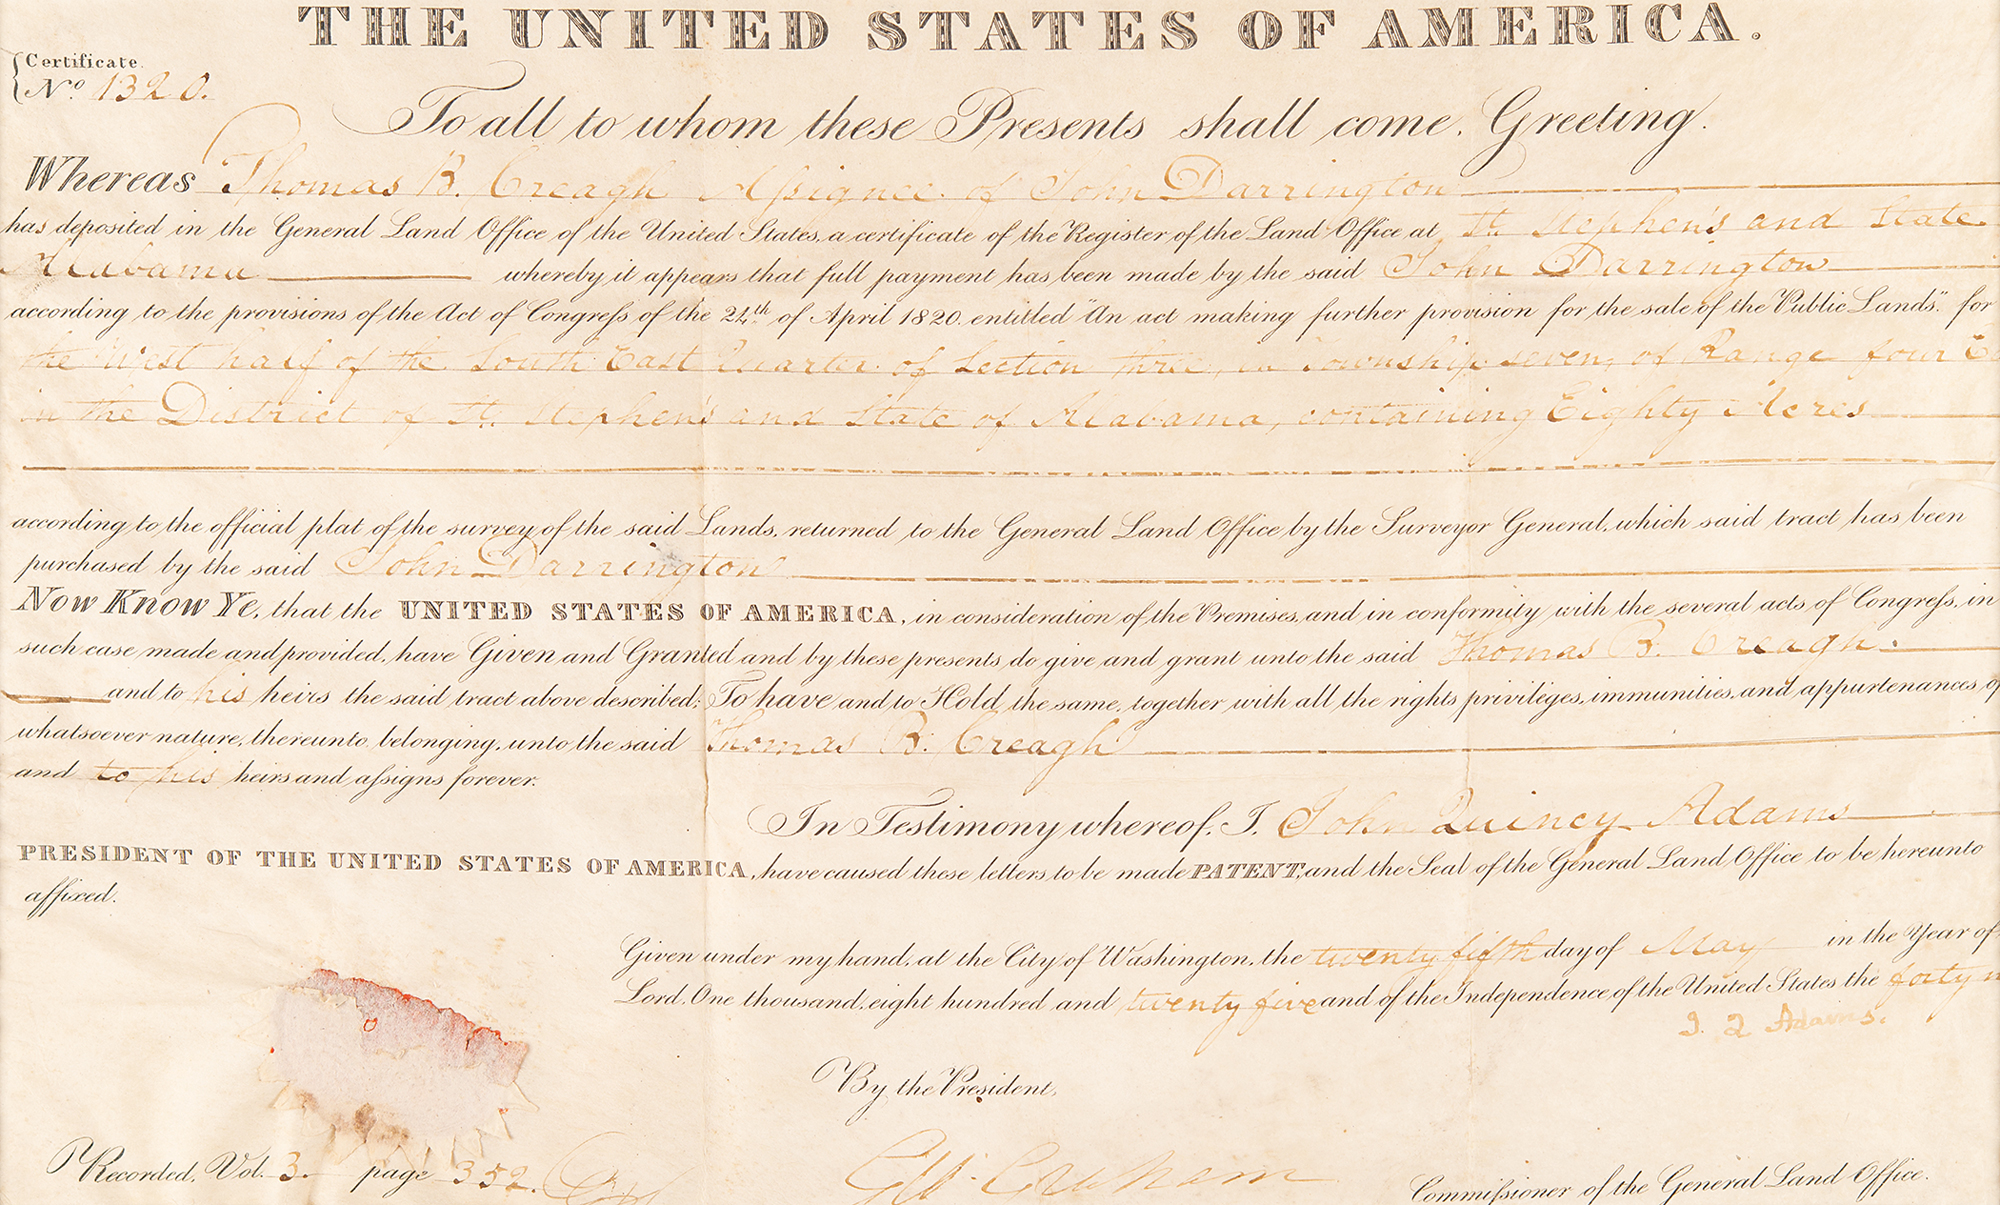 THE UNITED STATES OF AMERICA.
Certificate
No. 1320.
To all to whom these Presents shall come, Greeting.
Whereas Thomas B. Creagh Assignee of John Darrington
has deposited in the General Land Office of the United States, a certificate of the Register of the Land Office at St. Stephen's and State
Alabama whereby it appears that full payment has been made by the said John Darrington
according to the provisions of the Act of Congress of the 24th of April 1820. entitled "An act making further provision for the sale of the Public Lands". for
the West half of the South East Quarter of Section three, in Township seven, of Range four
in the District of St. Stephen's and State of Alabama, containing Eighty Acres
according to the official plat of the survey of the said Lands, returned to the General Land Office by the Surveyor General, which said tract has been
purchased by the said John Darrington
Now Know Ye, that the UNITED STATES OF AMERICA, in consideration of the Premises, and in conformity with the several acts of Congress, in
such case made and provided, have Given and Granted and by these presents do give and grant unto the said Thomas B. Creagh.
and to his heirs the said tract above described; To have and to Hold the same, together with all the rights privileges, immunities, and appurtenances of
whatsoever nature, thereunto belonging, unto the said Thomas B. Creagh
and to his heirs and assigns forever.
In Testimony whereof, I, John Quincy Adams
PRESIDENT OF THE UNITED STATES OF AMERICA, have caused these letters to be made PATENT, and the Seal of the General Land Office to be hereunto
affixed.
Given under my hand, at the City of Washington, the twenty fifth day of May in the Year of
Lord, One thousand, eight hundred and twenty five and of the Independence of the United States the forty n
J. Q. Adams.
By the President,
Recorded, Vol. 3. page 352.
Geo. Graham
Commissioner of the General Land Office.